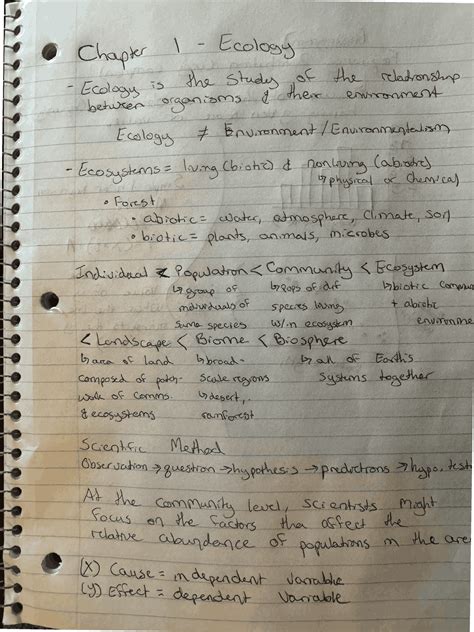 Chapter 1 - Ecology
- Ecology is the study of the relationship
between organisms & their environment
Ecology ≠ Environment/Environmentalism
- Ecosystems = living (biotic) & nonliving (abiotic)
↳ physical or chemical
• Forest
• abiotic = water, atmosphere, climate, soil
• biotic = plants, animals, microbes
Individual < Population < Community < Ecosystem
↳ group of ↳ Pops of dif ↳ biotic commu
individuals of species living + abiotic
same species w/in ecosystem environme
< Landscape < Biome < Biosphere
↳ area of land ↳ broad- ↳ all of Earth's
composed of patch- scale regions systems together
work of comms. ↳ desert,
& ecosystems rainforest
Scientific Method
Observation → question → hypothesis → predictions → hypo. test
At the community level, scientists might
focus on the factors tha affect the
relative abundance of populations in the are
(X) Cause = independent variable
(Y) Effect = dependent variable